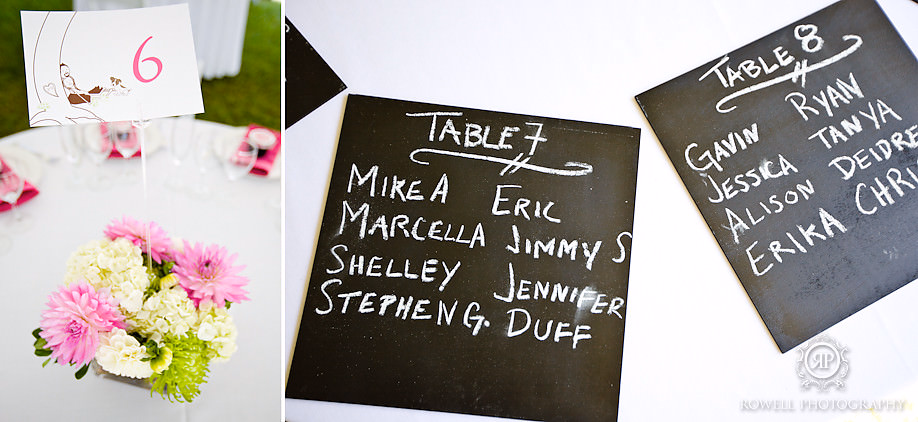 6
TABLE 7
MIKE A ERIC
MARCELLA JIMMY S
SHELLEY JENNIFER
STEPHEN G. DUFF
TABLE 8
GAVIN RYAN
JESSICA TANYA
ALISON DEIDRE
ERIKA CHRI
RP
ROWELL PHOTOGRAPHY